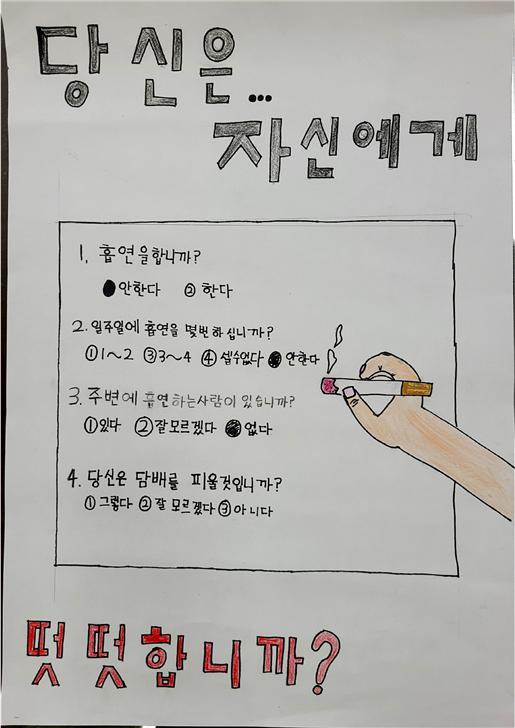 당신은...
자신에게
1. 흡연을합니까?
● 안한다 ② 한다
2. 일주일에 흡연을 몇번 하십니까?
①1~2 ③3~4 ④ 셀수없다 ● 안한다
3. 주변에 흡연하는사람이 있습니까?
①있다 ②잘모르겠다 ●없다
4. 당신은 담배를 피울것입니까?
①그렇다 ②잘 모르겠다 ③아니다
떳떳합니까?